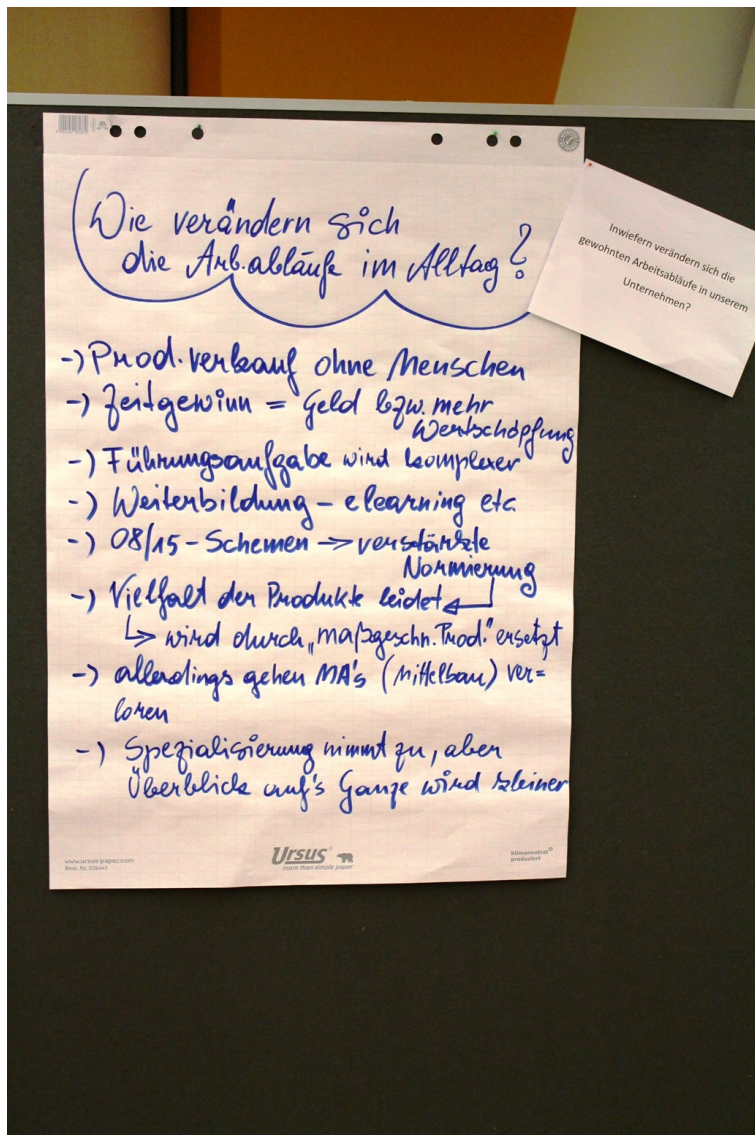 Wie verändern sich
die Arb.abläufe im Alltag?
Inwiefern verändern sich die
gewohnten Arbeitsabläufe in unserem
Unternehmen?
-) Prod.verkauf ohne Menschen
-) Zeitgewinn = Geld bzw. mehr
Wertschöpfung
-) Führungsaufgabe wird komplexer
-) Weiterbildung – elearning etc.
-) 08/15-Schemen → verstärkte
Normierung
-) Vielfalt der Produkte leidet
↳ wird durch „maßgeschn. Prod." ersetzt
-) allerdings gehen MA's (Mittelbau) ver=
loren
-) Spezialisierung nimmt zu, aber
Überblick auf's Ganze wird kleiner
www.ursus-paper.com
Ursus
more than simple paper
klimaneutral
produziert